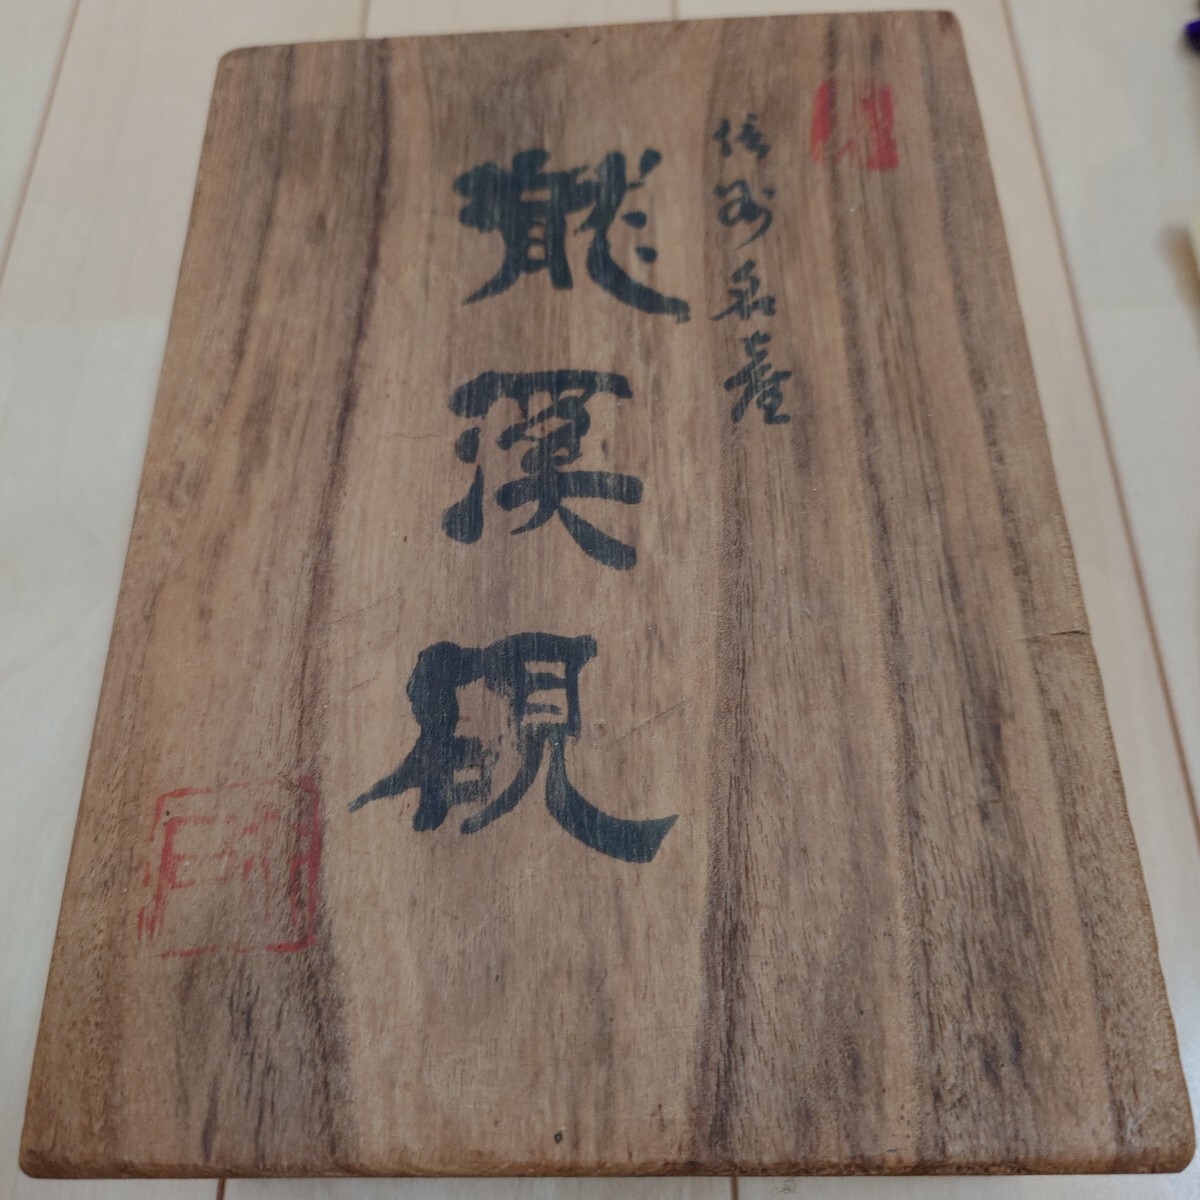 信州名産
龍溪硯